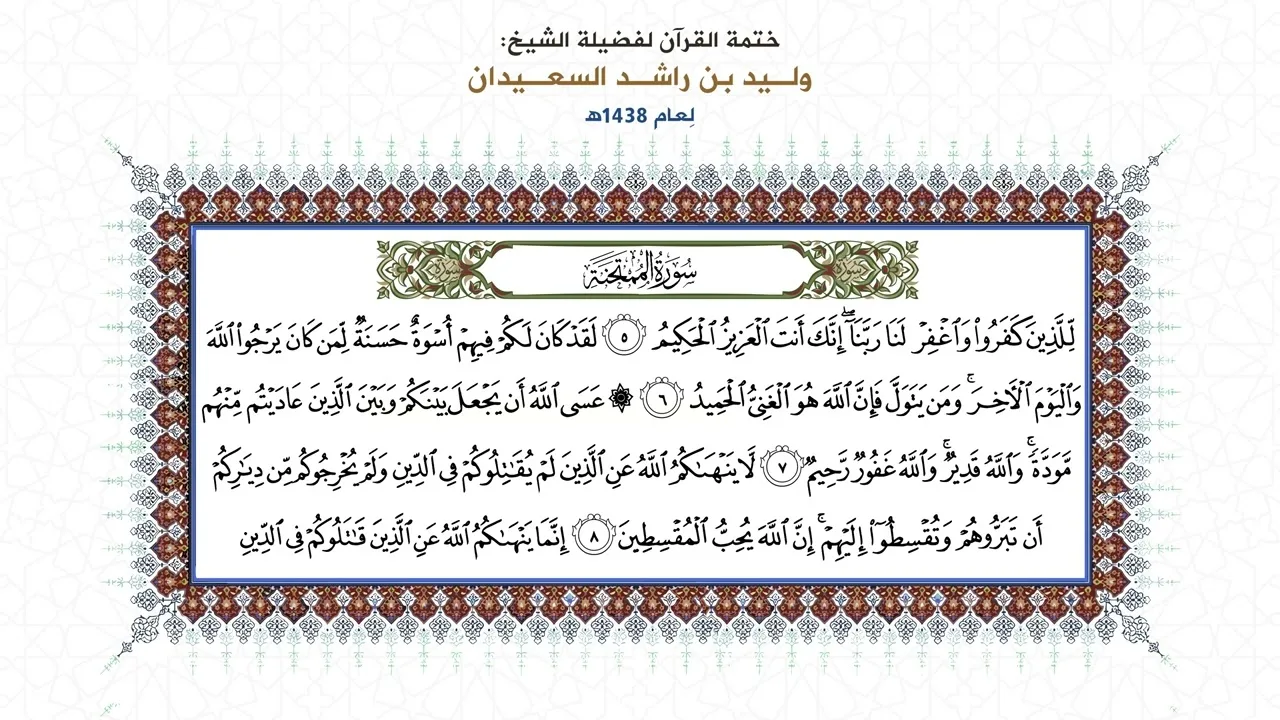 ختمة القرآن لفضيلة الشيخ:
وليد بن راشد السعيدان
لعام 1438هـ
سُورَةُ المُمْتَحنَةِ
لِّلَّذِينَ كَفَرُواْ وَٱغْفِرْ لَنَا رَبَّنَآۖ إِنَّكَ أَنتَ ٱلْعَزِيزُ ٱلْحَكِيمُ ٥ لَقَدْ كَانَ لَكُمْ فِيهِمْ أُسْوَةٌ حَسَنَةٌ لِّمَن كَانَ يَرْجُواْ ٱللَّهَ
وَٱلْيَوْمَ ٱلْأٓخِرَۚ وَمَن يَتَوَلَّ فَإِنَّ ٱللَّهَ هُوَ ٱلْغَنِيُّ ٱلْحَمِيدُ ٦ ۞ عَسَى ٱللَّهُ أَن يَجْعَلَ بَيْنَكُمْ وَبَيْنَ ٱلَّذِينَ عَادَيْتُم مِّنْهُم
مَّوَدَّةًۚ وَٱللَّهُ قَدِيرٌۚ وَٱللَّهُ غَفُورٌ رَّحِيمٌ ٧ لَّا يَنْهَىٰكُمُ ٱللَّهُ عَنِ ٱلَّذِينَ لَمْ يُقَٰتِلُوكُمْ فِي ٱلدِّينِ وَلَمْ يُخْرِجُوكُم مِّن دِيَٰرِكُمْ
أَن تَبَرُّوهُمْ وَتُقْسِطُوٓاْ إِلَيْهِمْۚ إِنَّ ٱللَّهَ يُحِبُّ ٱلْمُقْسِطِينَ ٨ إِنَّمَا يَنْهَىٰكُمُ ٱللَّهُ عَنِ ٱلَّذِينَ قَٰتَلُوكُمْ فِي ٱلدِّينِ